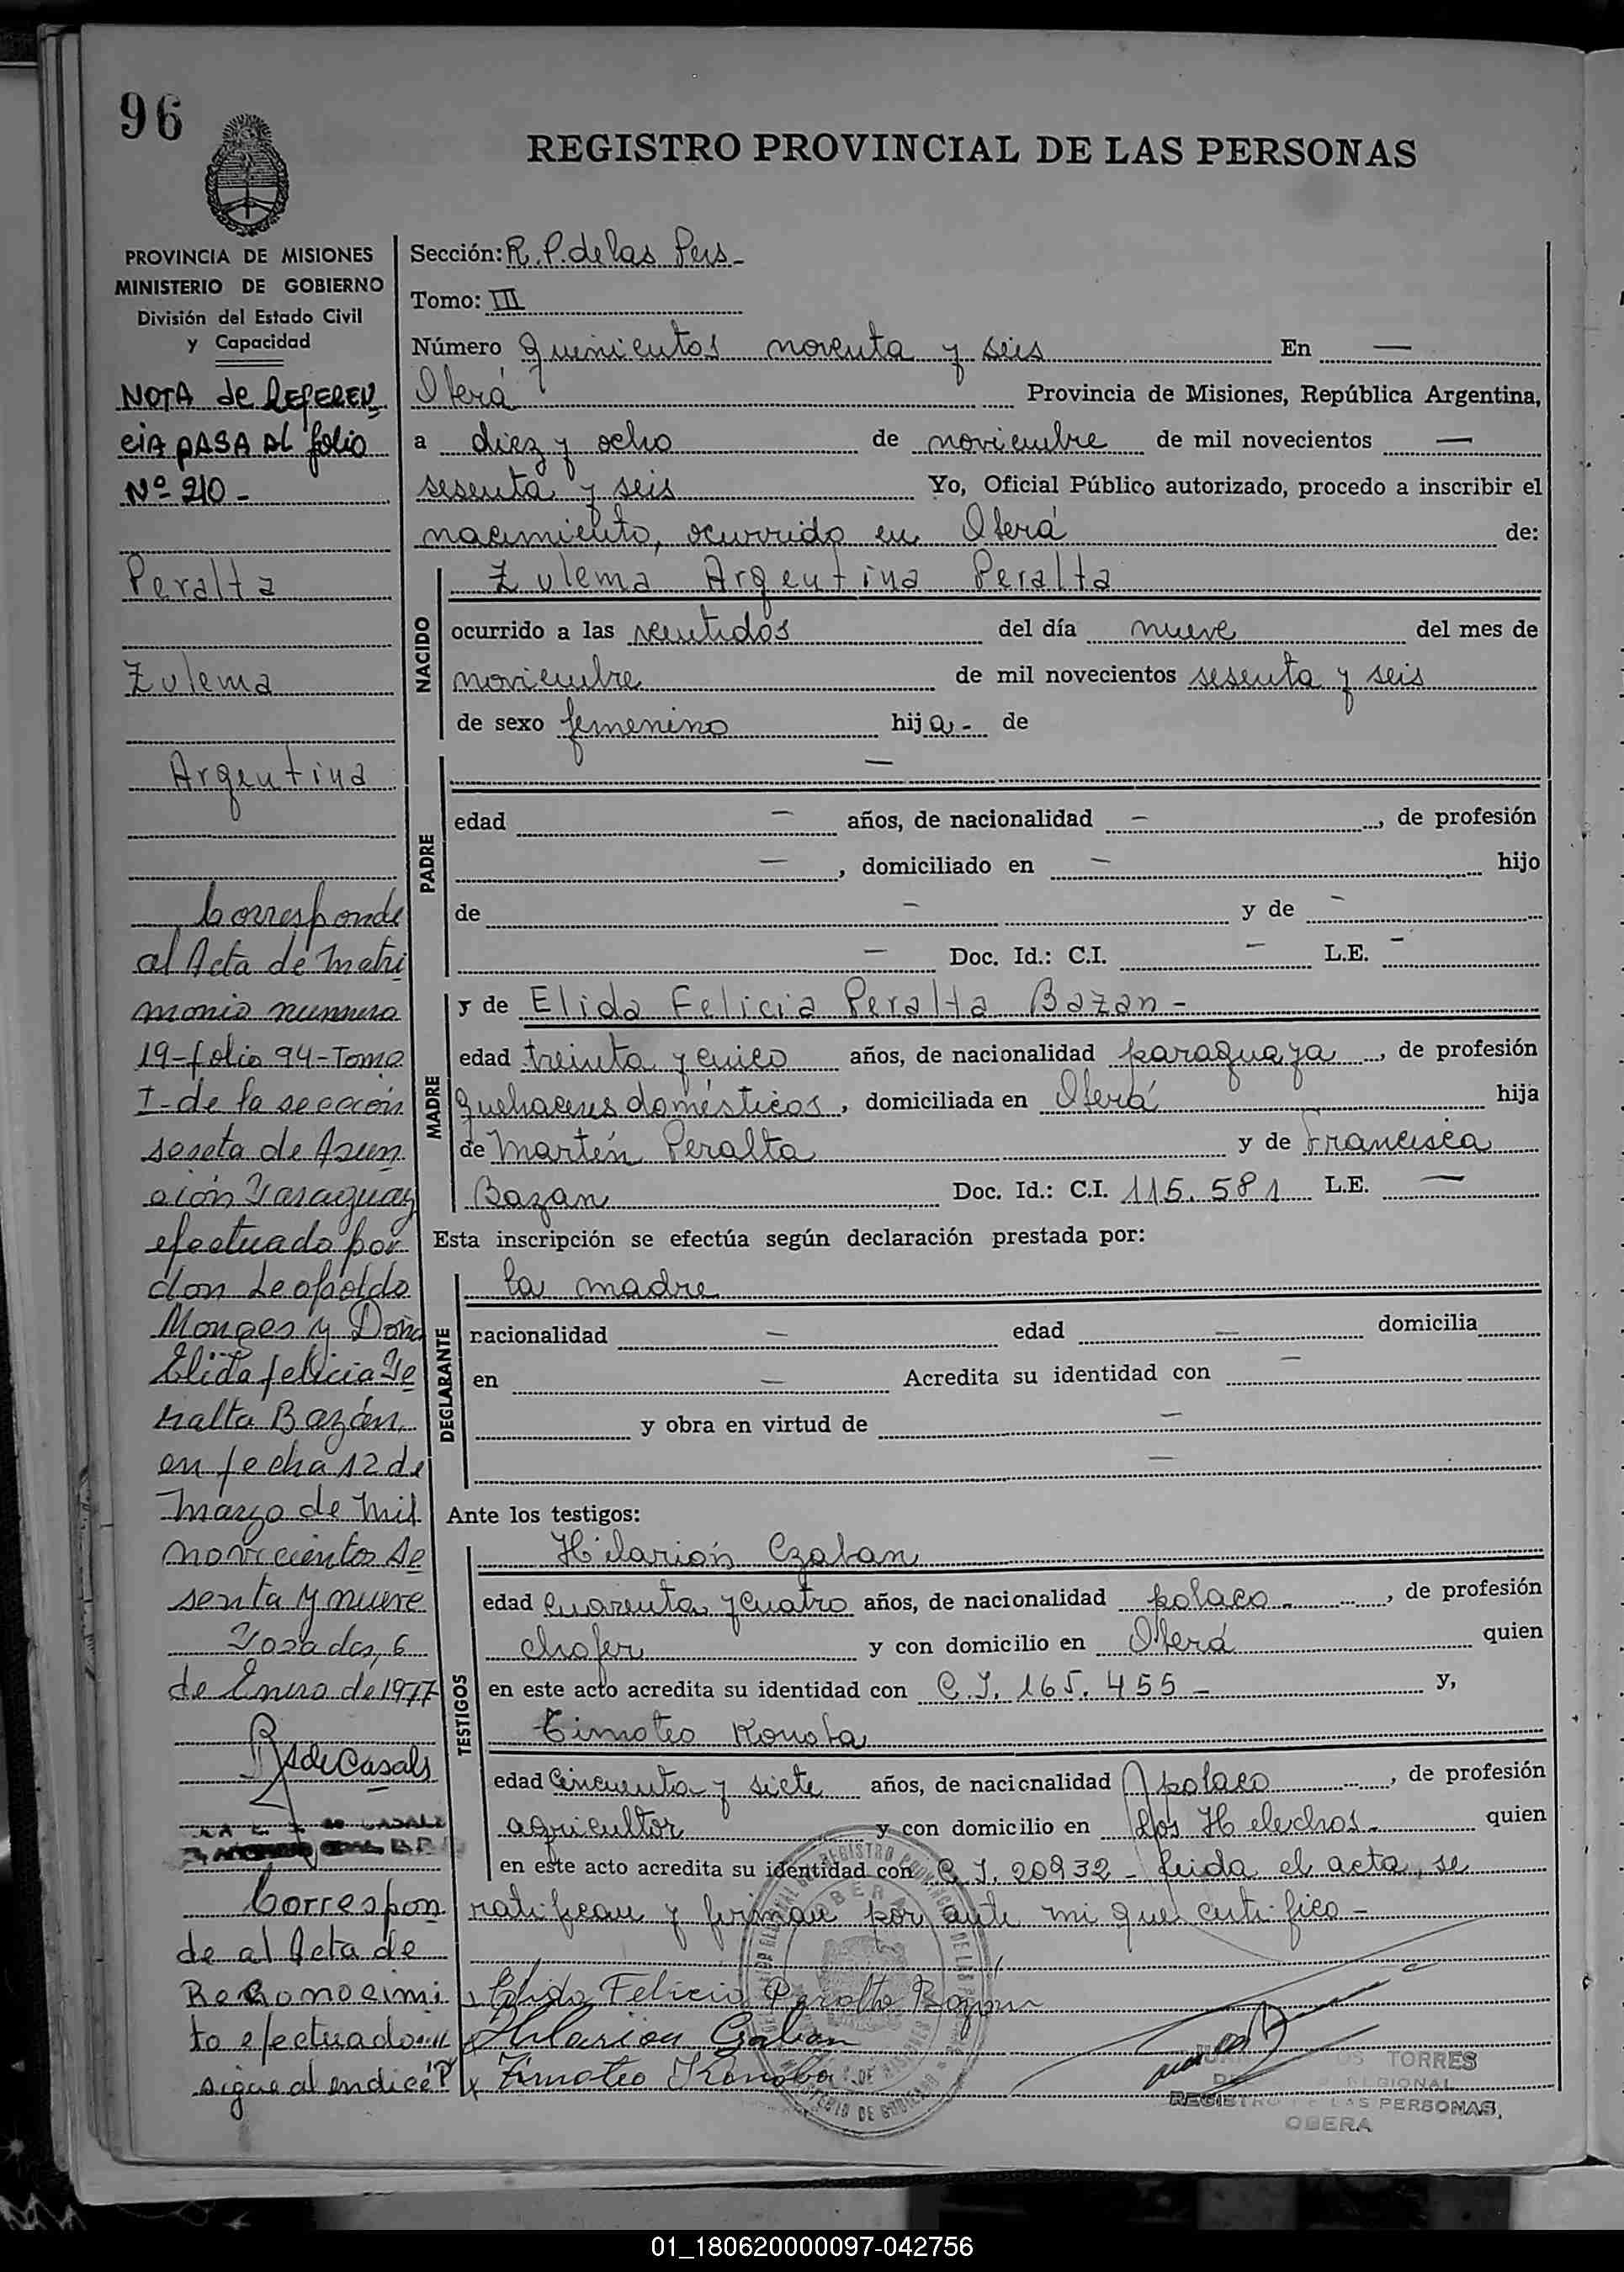 96
REGISTRO PROVINCIAL DE LAS PERSONAS
PROVINCIA DE MISIONES
MINISTERIO DE GOBIERNO
División del Estado Civil
y Capacidad
NOTA de REFEREN
CIA PASA AL folio
Nº 210-
Peralta
Zulema
Argentina
Corresponde
al Acta de Matri
monio numero
19-folio 94-Tomo
I-de la sección
sexta de Asun
ción Paraguay
efectuado por
don Leopoldo
Monges y Doña
Elida felicia Pe
ralta Bazán,
en fecha 12 de
Marzo de mil
novecientos se
senta y nueve
Posadas, 6
de Enero de 1977
de Casals
Correspon
de al Acta de
Reconocimi
to efectuado
sigue al endice
Sección: R. P. de las Pers-
Tomo: III
Número quinientos noventa y seis En —
Oberá Provincia de Misiones, República Argentina,
a diez y ocho de noviembre de mil novecientos —
sesenta y seis Yo, Oficial Público autorizado, procedo a inscribir el
nacimiento, ocurrido en Oberá de:
NACIDO
Zulema Argentina Peralta
ocurrido a las veintidos del día nueve del mes de
noviembre de mil novecientos sesenta y seis
de sexo femenino hija- de
PADRE
—
edad — años, de nacionalidad —, de profesión
—, domiciliado en — hijo
de — y de —
— Doc. Id.: C.I. — L.E. —
MADRE
y de Elida Felicia Peralta Bazan-
edad treinta y cinco años, de nacionalidad paraguaya, de profesión
quehaceres domésticos, domiciliada en Oberá hija
de Martín Peralta y de Francisca
Bazan Doc. Id.: C.I. 115.581 L.E. —
Esta inscripción se efectúa según declaración prestada por:
DEGLARANTE
la madre
racionalidad — edad — domicilia
en — Acredita su identidad con —
y obra en virtud de —
—
Ante los testigos:
TESTIGOS
Hilarión Czaban
edad cuarenta y cuatro años, de nacionalidad polaco-, de profesión
chofer y con domicilio en Oberá quien
en este acto acredita su identidad con C.I. 165.455- y,
Timoteo Konoba
edad cincuenta y siete años, de nacionalidad polaco, de profesión
agricultor y con domicilio en Los Helechos- quien
en este acto acredita su identidad con C.I. 20932- leida el acta, se
ratifican y firman por ante mi que certifico-
Elida Felicia Peralta Bazán
x Hilarion Czaban
x Timoteo Konoba
TORRES
REGIONAL
REGISTRO DE LAS PERSONAS,
OBERA
01_180620000097-042756